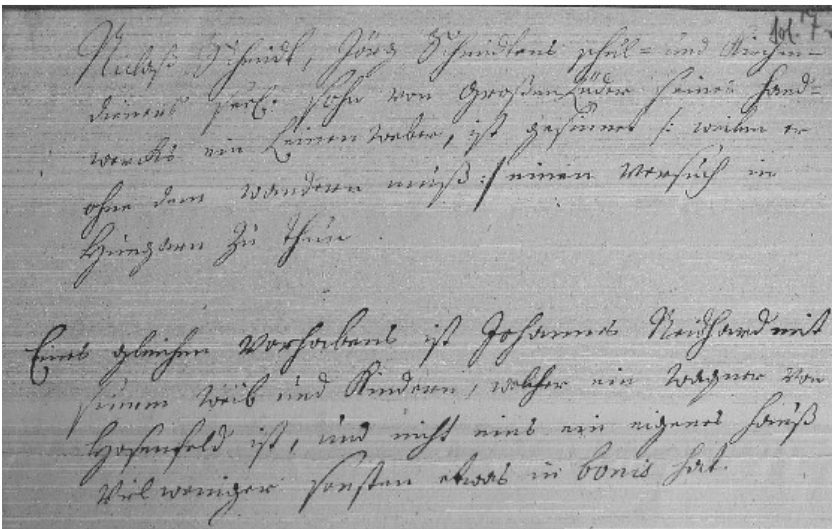 fol. 7.
Niclaß Schmidt, Jörg Schmidtens schul= und Kirchen=
dieners seel. sohn von Großenlüder seines hand=
wercks ein Leinen weber, ist gesinnet /: weilen er
ohne dem wandern muß :/ einen Versuch in
Hungarn zu thun.
Eines gleichen Vorhabens ist Johannes Neidhard mit
seinem Weib und Kindern, welcher ein Wagner von
Hosenfeld ist, und nicht eins ein eigenes hauß
viel weniger sonsten etwas in bonis hat.